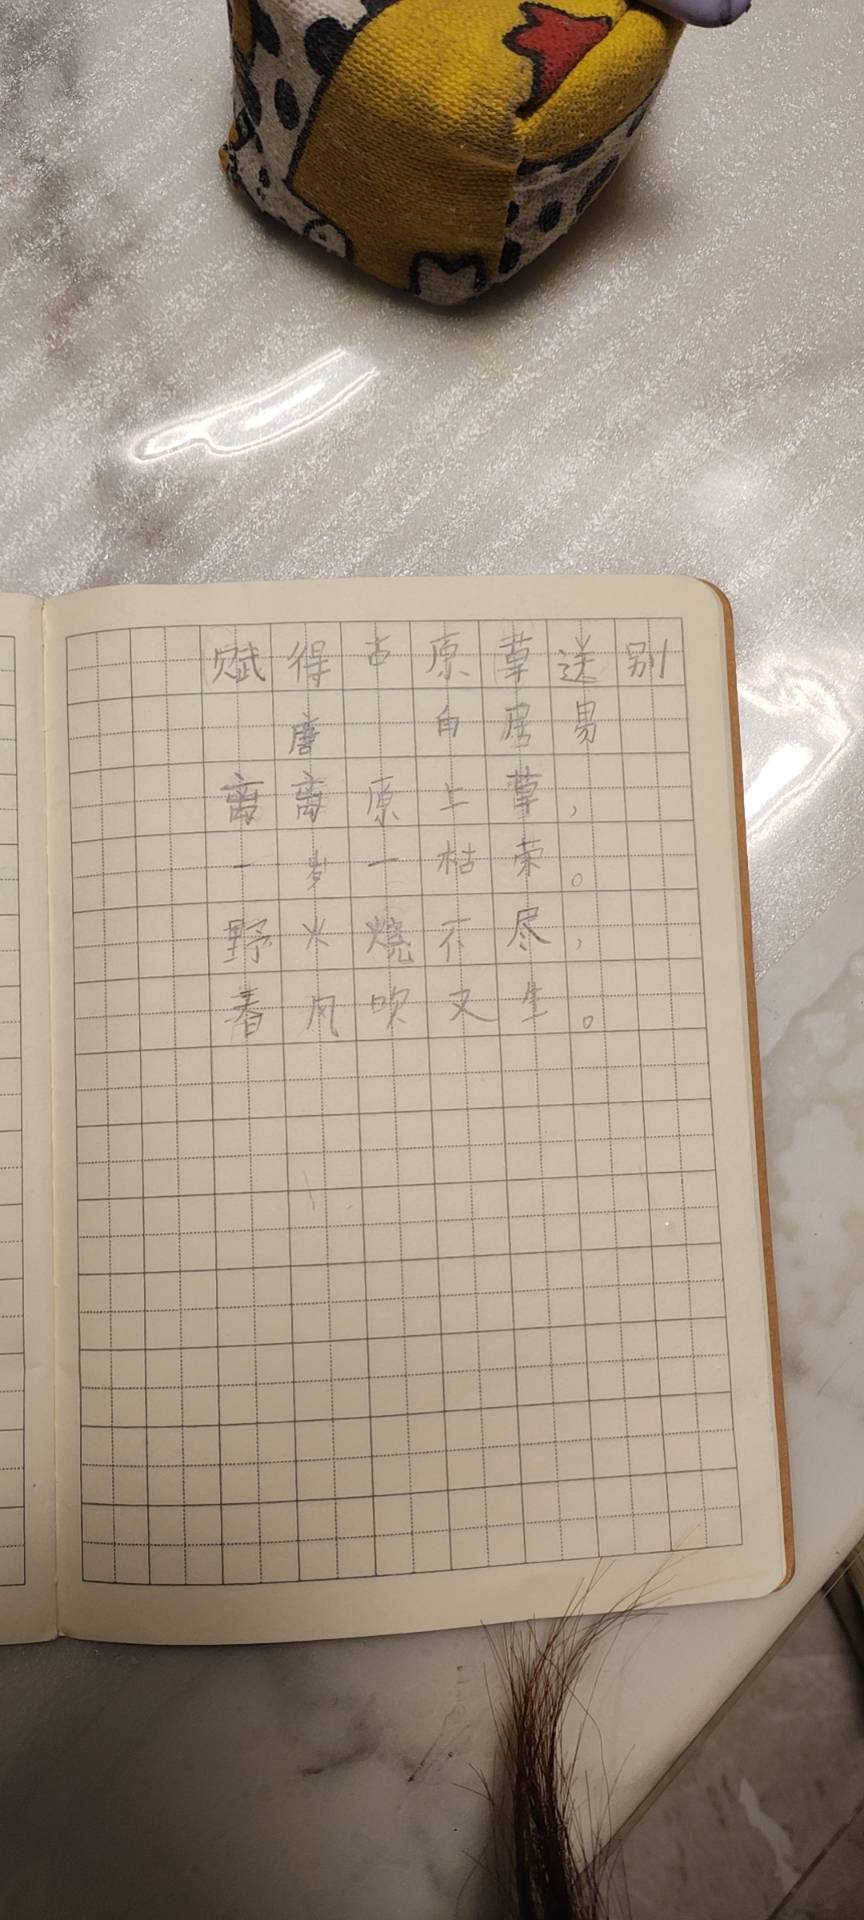 赋得古原草送别
唐 白居易
离离原上草，
一岁一枯荣。
野火烧不尽，
春风吹又生。